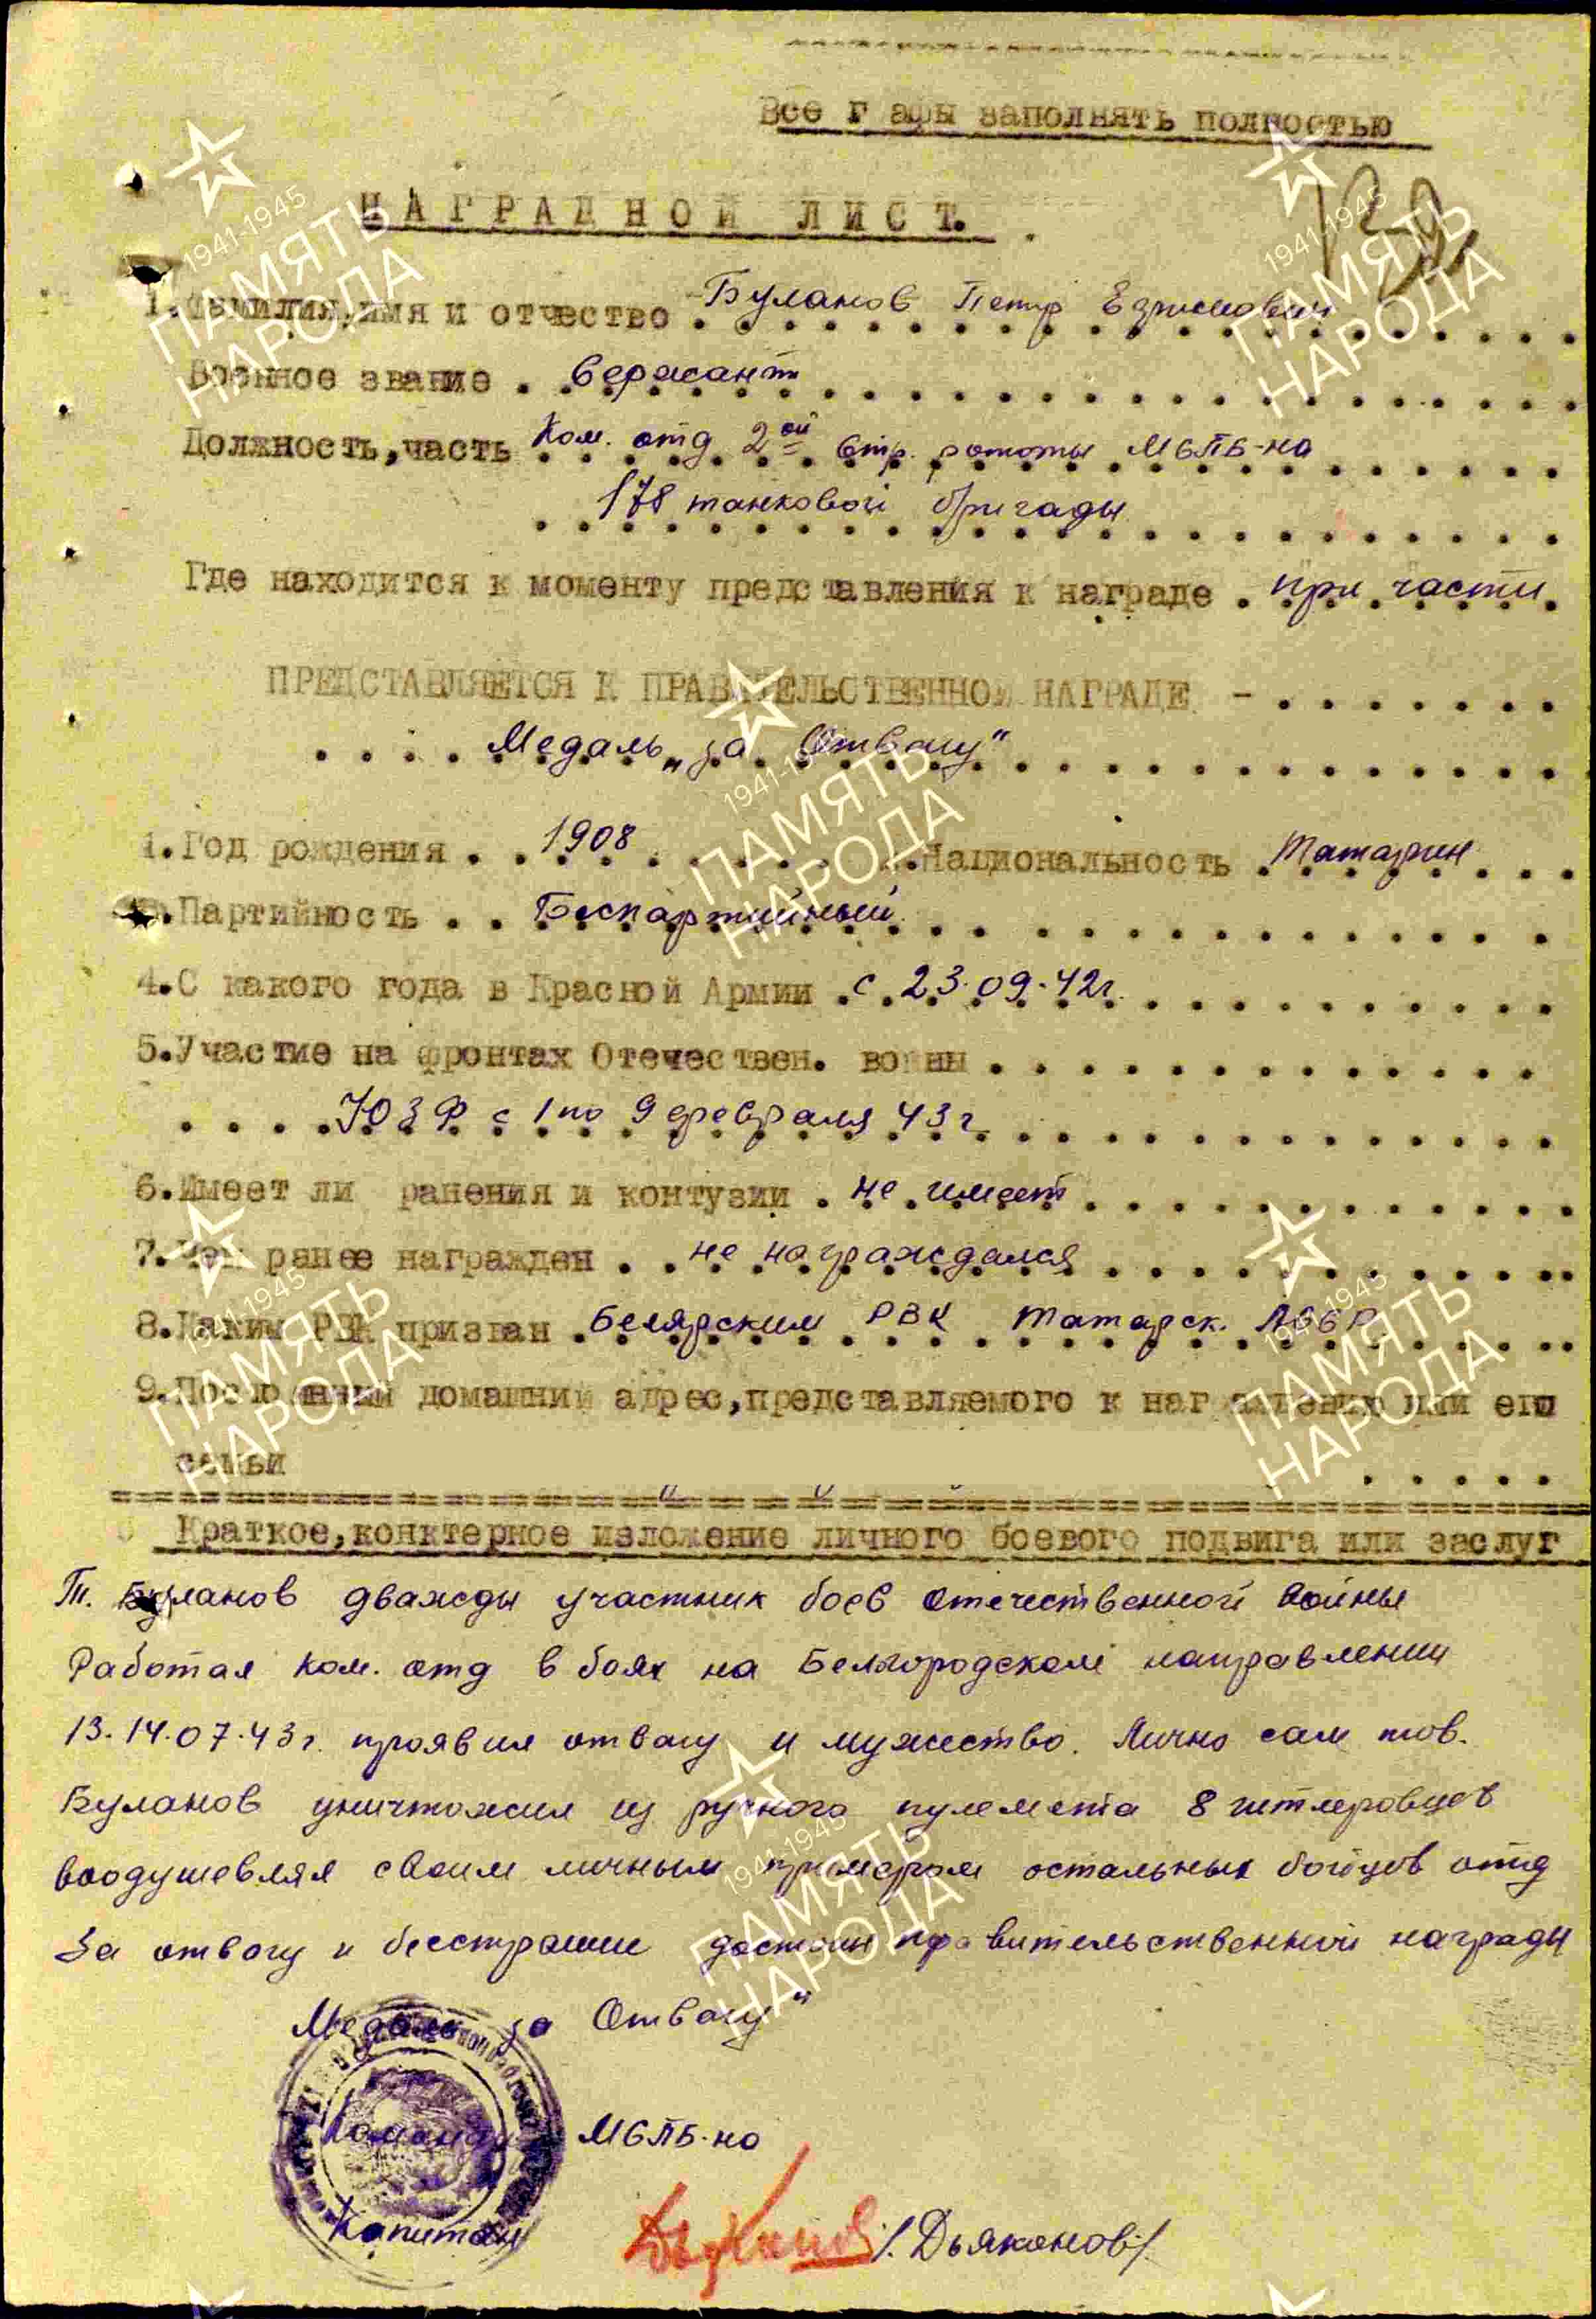 Все г афы заполнять полностью
НАГРАДНОЙ ЛИСТ.
1. Фамилия, имя и отчество Буланов Петр
Военное звание Сержант
Должность, часть Ком. отд 2ой Стр. роты МСПБ-на
178 танковой бригады
Где находится к моменту представления к награде при части
ПРЕДСТАВЛЯЕТСЯ К ПРАВИТЕЛЬСТВЕННОЙ НАГРАДЕ -
Медаль „за Отвагу"
1. Год рождения 1908 2. Национальность Татарин
3. Партийность Беспартийный
4. С какого года в Красной Армии с 23.09.42г.
5. Участие на фронтах Отечествен. войны
ЮЗФ с 1 по 9 февраля 43г
6. Имеет ли ранения и контузии не имеет
7. Чем ранее награжден не награждался
8. Каким РВК призван Белярским РВК Татарск. АССР
9. Постоянный домашний адрес, представляемого к награждению или его
семьи
Краткое, конктерное изложение личного боевого подвига или заслуг
Т. Буланов дважды участник боев отечественной войны
Работая ком. отд в боях на Белгородском направлении
13.14.07.43г. проявил отвагу и мужество. Лично сам тов.
Буланов уничтожил из ручного пулемета 8 гитлеровцев
воодушевляя своим личным примером остальных бойцов отд
За отвагу и бесстрашие достоин правительственной награды
Медаль за Отвагу"
Командир МСПБ-на
Капитан /Дьяконов/
1941-1945
ПАМЯТЬ
НАРОДА